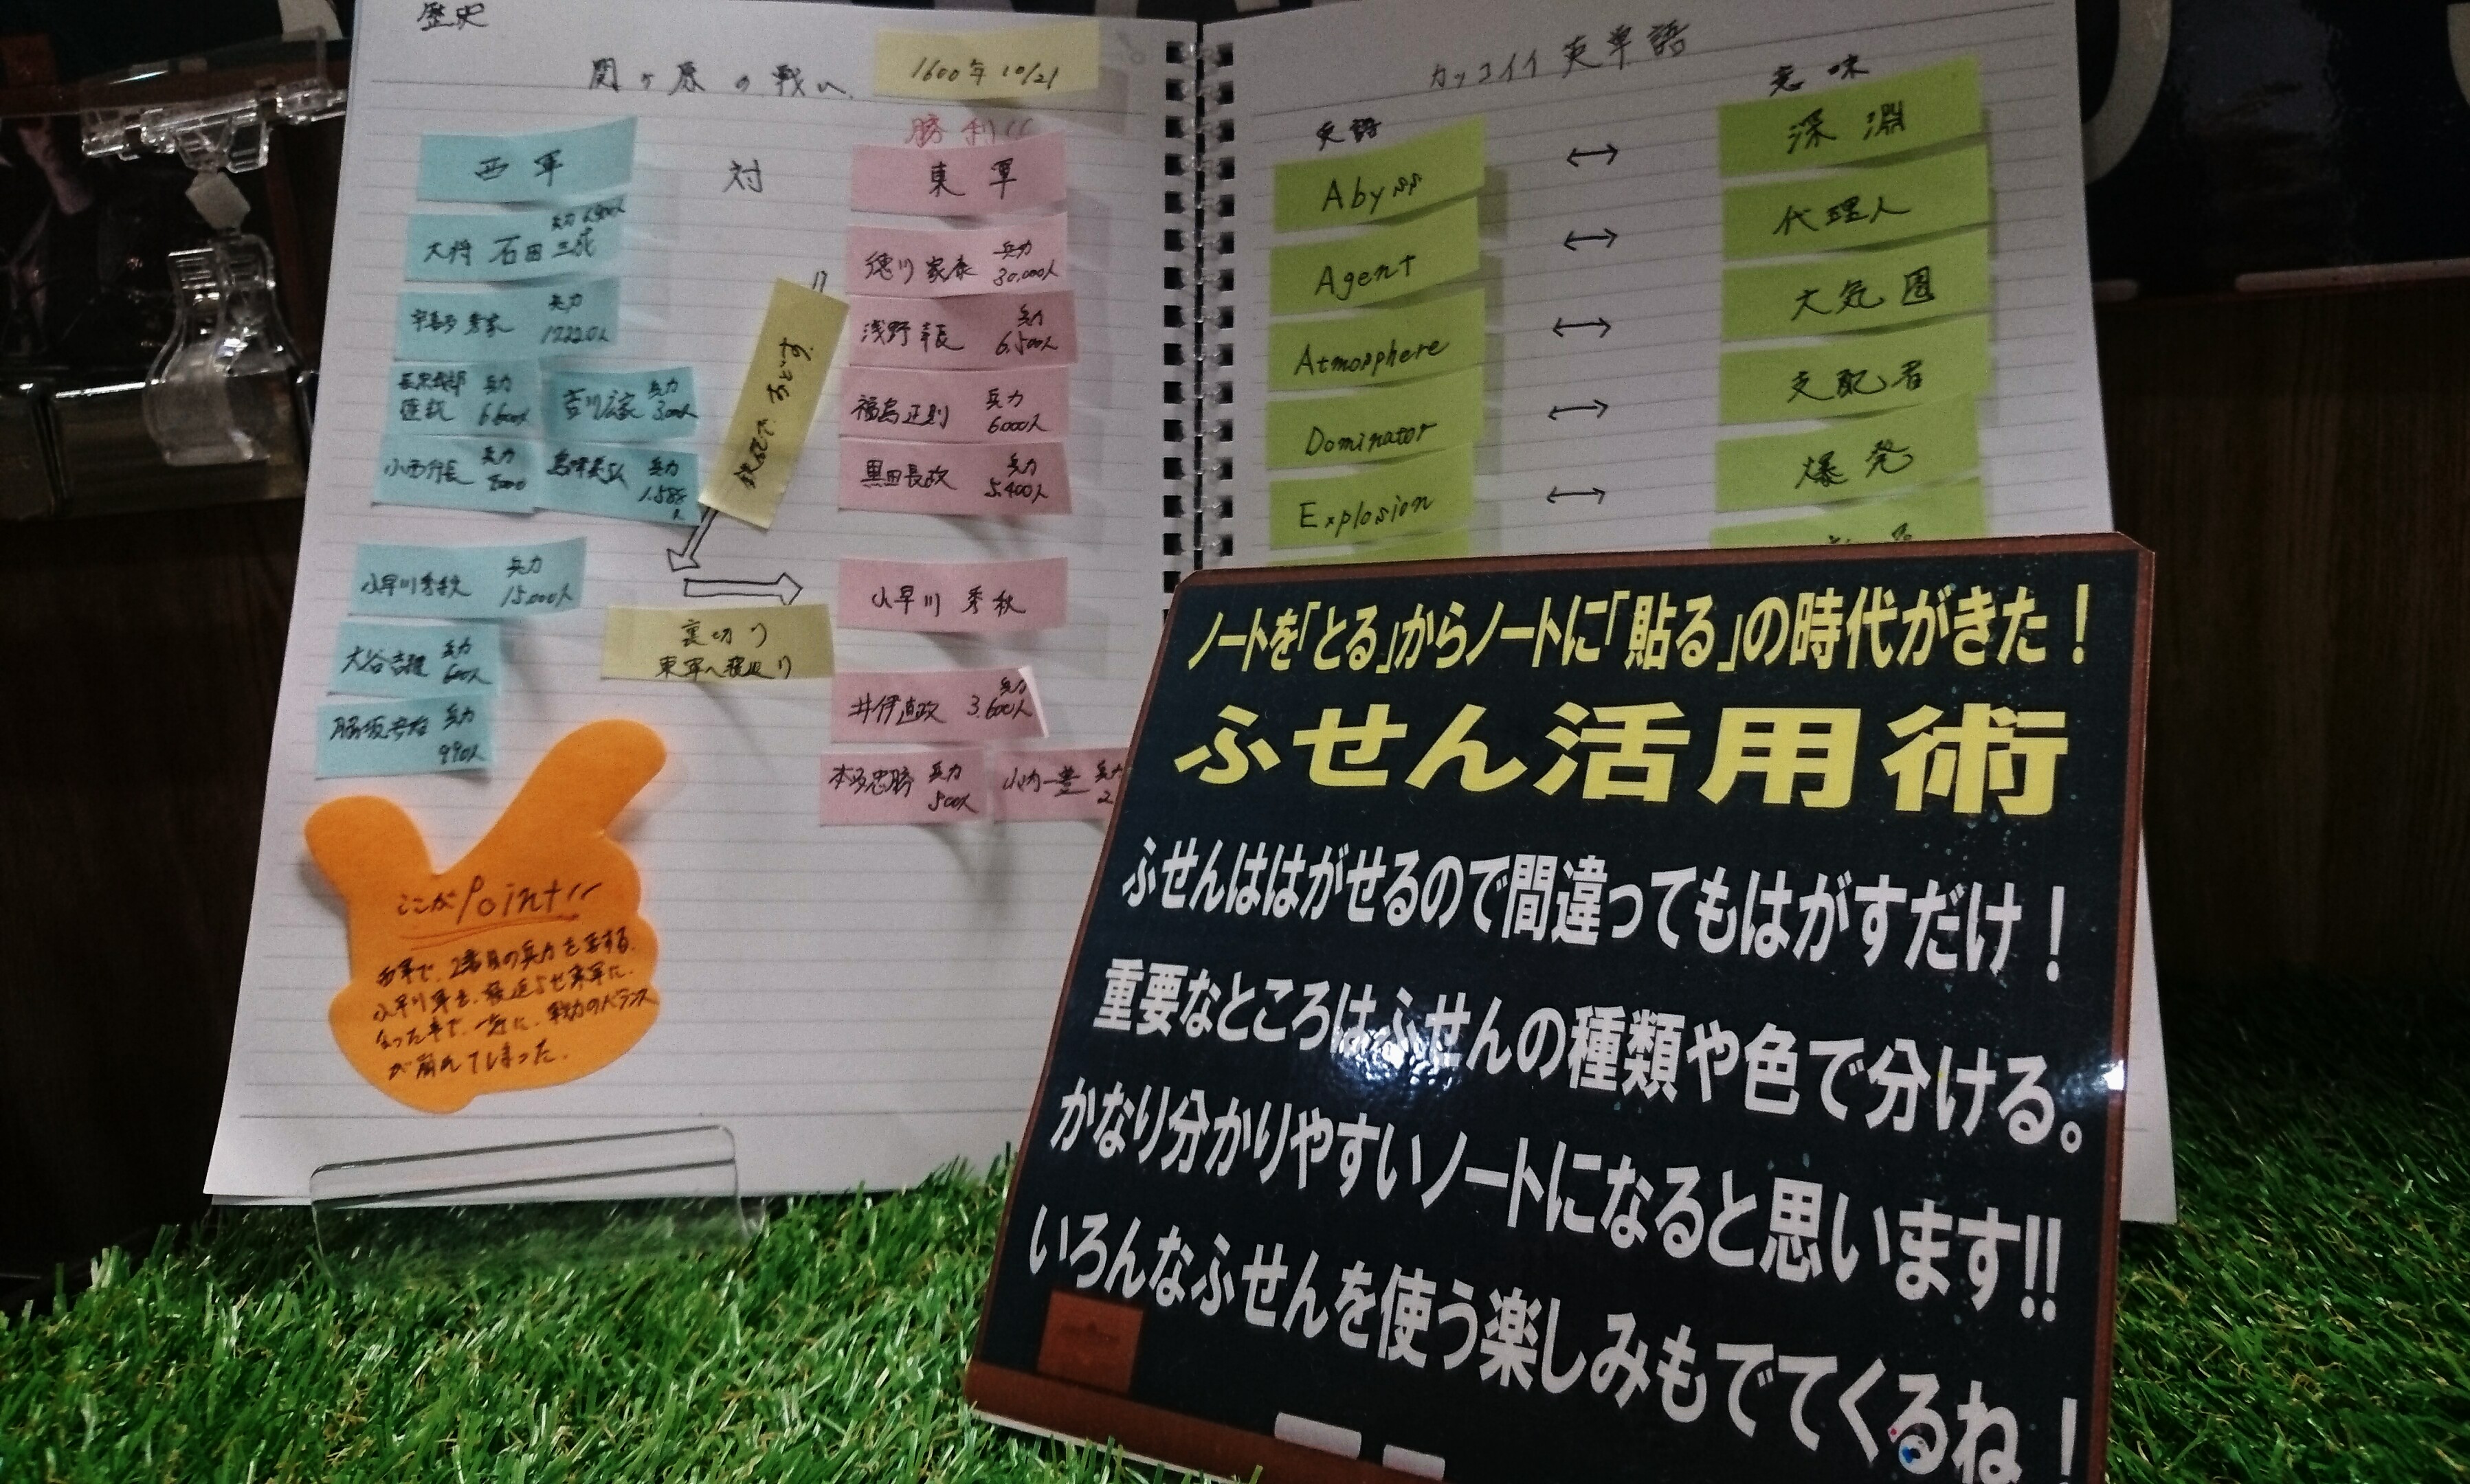 歴史
関ヶ原の戦い
1600年 10/21
勝利!!
西軍
対
東軍
大将 石田三成
兵力
徳川家康 兵力 30,000人
宇喜多秀家 兵力 17220人
浅野幸長 兵力 6,500人
長宗我部 兵力 6,600人
吉川広家 兵力 3,000人
福島正則 兵力 6,000人
小西行長 兵力
島津義弘 兵力 1,588人
黒田長政 兵力 5,400人
鉄砲で、おどす。
小早川秀秋 兵力 15,000人
小早川 秀秋
裏切り
東軍へ寝返り
大谷吉継 兵力 600人
井伊直政 兵力 3,600人
脇坂安治 兵力 990人
本多忠勝 兵力 500人
山内一豊 兵力 2
ここがPoint!!
西軍で、2番目の兵力を有する、
小早川軍を、寝返らせ東軍に
なった事で、一気に、戦力のバランス
が崩れてしまった。
カッコイイ英単語
英語
意味
Abyss ↔ 深淵
Agent ↔ 代理人
Atmosphere ↔ 大気圏
Dominator ↔ 支配者
Explosion ↔ 爆発
ノートを「とる」からノートに「貼る」の時代がきた！
ふせん活用術
ふせんははがせるので間違ってもはがすだけ！
重要なところはふせんの種類や色で分ける。
かなり分かりやすいノートになると思います!!
いろんなふせんを使う楽しみもでてくるね！